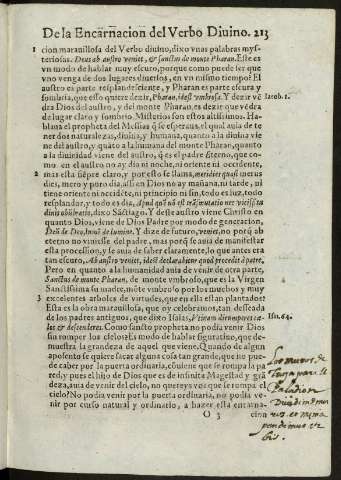 De la Encarnacion del Verbo Diuino. 213
1 cion marauillosa del Verbo diuino, dixo vnas palabras mys-
teriosas. Deus ab austro veniet, & sanctus de monte Pharan. Este es
vn modo de hablar muy escuro, porque como puede ser que
vno venga de dos lugares diuersos, en vn mismo tiempo? El
austro es parte resplandeciente, y Pharan es parte escura y
sombria, que esso quiere dezir, Pharan, idest vmbrosa. Y dezir vẽ Iacob. 1.
dra del austro, y del monte de Pharan, es dezir que vẽdra
de lugar claro y sombrio. Misterios son estos altissimos. Ha-
blaua el propheta del Messias q̃ se esperaua, el qual auia de te-
ner dos naturalezas, diuina, y humana, quanto a la diuina vie
ne del austro, y quãto a la humana del monte Pharan, quanto
a la diuinidad viene del austro, q̃ es el padre Eterno, que co-
mo en el austro no ay dia ni noche, ni oriente ni occidente,
2 mas esta siẽpre claro, y por esso se llama, meridies quasi merus
dies, mero y puro dia, assi en Dios no ay mañana, ni tarde, no
tiene oriente ni occidẽte, ni principio ni fin, todo es luz, todo
resplandor, y todo es dia, Apud quẽ nõ est trãsmutatio nec vicissitu
dinis obũbratio, dixo Sãctiago. Y deste austro viene Christo en
quanto Dios, viene de Dios Padre por modo de generacion,
Deũ de Deo, lumẽ de lumine. Y dize de futuro, veniet, no porq̃ ab
eterno no viniesse del padre, mas porq̃ se auia de manifestar
esta procession, y se auia de saber claramente, lo que antes era
tan escuro, Ab austro veniet, idest declarabitur quod procedit à patre,
Pero en quanto a la humanidad auia de venir de otra parte,
Sanctus de monte Pharan, de monte vmbroso, que es la Virgen
Sanctissima su madre, mõte vmbroso por los muchos y muy
3 excelentes arboles de virtudes, que en ella estan plantados?
Esta es la obra marauillosa, que oy celebramos, tan desseada
de los padres antiguos, que dixo Isaias, Vtinam dirumperes cæ- Isa. 64.
los & descenderes. Como sancto propheta no podia venir Dios
sin romper los cielos? Es modo de hablar figuratiuo, que de-
muestra la grandeza de aquel que viene. Quando de algun
aposento se quiere sacar alguna cosa tan grande, que no pue-
de caber por la puerta ordinaria, cõuiene que se rompa la pa
red, y pues el hijo de Dios que es de infinita Magestad y grã
deza, auia de venir del cielo, no quereys vos que se rompa el
cielo? No podia venir por la puerta ordinaria, no podia ve-
nir por curso natural y ordinario, a hazer esta encarna
O 3 cion
Los muros de
Troya para el
Paladion